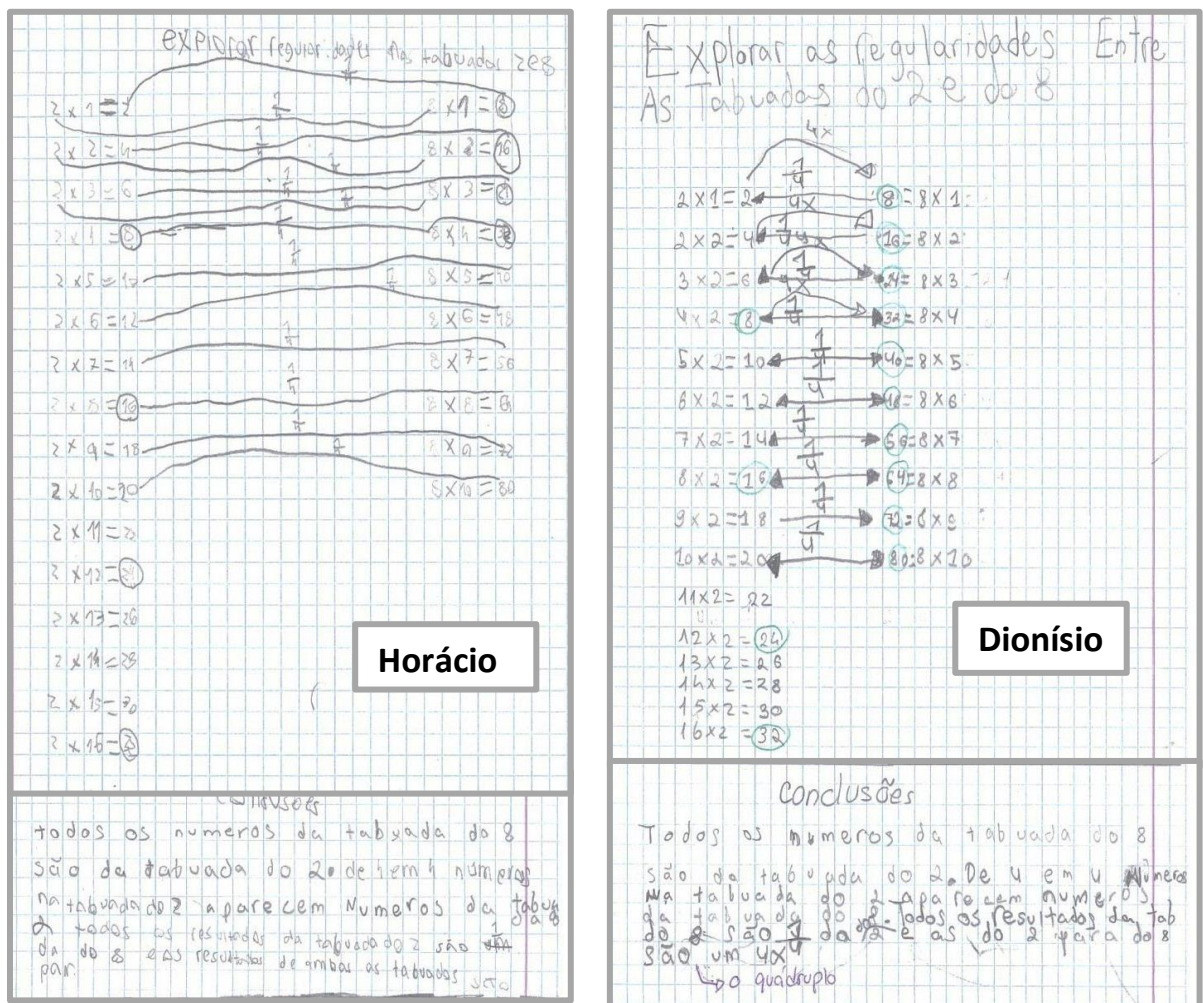 explorar regularidades nas tabuadas 2e8
2 x 1 = 2 8 x 1 = 8
2 x 2 = 4 8 x 2 = 16
2 x 3 = 6 8 x 3 =
2 x 4 = 8 8 x 4 =
2 x 5 = 10 8 x 5 =
2 x 6 = 12 8 x 6 = 48
2 x 7 = 14 8 x 7 = 56
2 x 8 = 16 8 x 8 = 64
2 x 9 = 18 8 x 9 = 72
2 x 10 = 20 8 x 10 = 80
2 x 11 =
2 x 12 =
2 x 13 = 26
2 x 14 = 28
2 x 15 = 30
2 x 16 =
Horácio
todos os numeros da tabuada do 8
são da tabuada do 2. de 4 em 4 números
na tabuada do 2 aparecem Numeros da tabua
todos os resultados da tabuada do 2 são 1/4
da do 8 e os resultados de ambas as tabuadas são
par.
Explorar as regularidades Entre
As Tabuadas do 2 e do 8
4x
2 x 1 = 2 1/4 8 = 8 x 1
4x
2 x 2 = 4 1/4 16 = 8 x 2
4x
3 x 2 = 6 1/4 24 = 8 x 3
4x
4 x 2 = 8 1/4 32 = 8 x 4
5 x 2 = 10 1/4 40 = 8 x 5
6 x 2 = 12 1/4 48 = 8 x 6
7 x 2 = 14 1/4 56 = 8 x 7
8 x 2 = 16 1/4 64 = 8 x 8
9 x 2 = 18 1/4 72 = 8 x 9
10 x 2 = 20 1/4 80 = 8 x 10
11 x 2 = 22
12 x 2 = 24
13 x 2 = 26
14 x 2 = 28
15 x 2 = 30
16 x 2 = 32
Dionísio
Conclusões
Todos os numeros da tabuada do 8
são da tabuada do 2. De 4 em 4 Números
na tabuada do 2 aparecem numeros
da tabuada do 8. todos os resultados da tab
do 8 são 1/4 da do 2 e as do 2 para do 8
são um 4x
o quádruplo